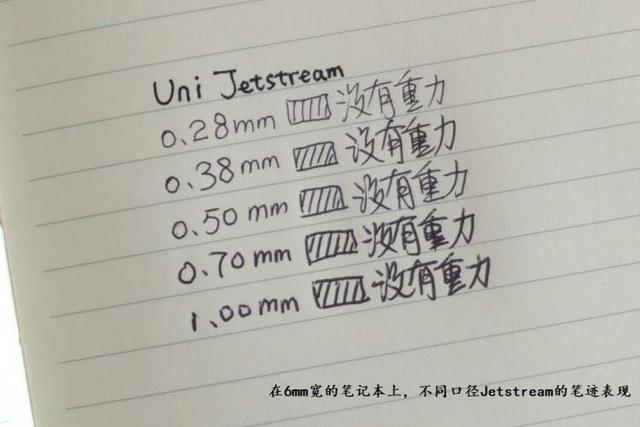 Uni Jetstream
0.28mm 没有重力
0.38mm 没有重力
0.50mm 没有重力
0.70mm 没有重力
1.00mm 没有重力
在6mm宽的笔记本上，不同口径Jetstream的笔迹表现